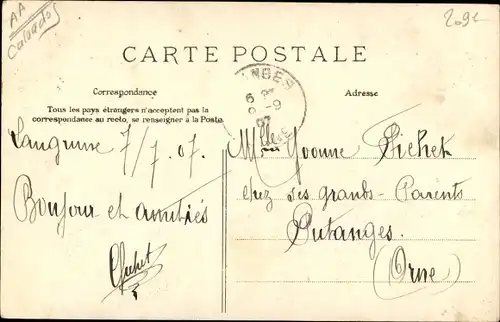 AA
Calvados
209c
CARTE POSTALE
Correspondance
Tous les pays étrangers n'acceptent pas la
correspondance au recto, se renseigner à la Poste.
Adresse
NGES
6
8-9
07
ORNE
Langrune 7/7.07.
Bonjour et amitiés
Mlle Yvonne Pichet
chez ses grands-Parents
Putanges.
(Orne)